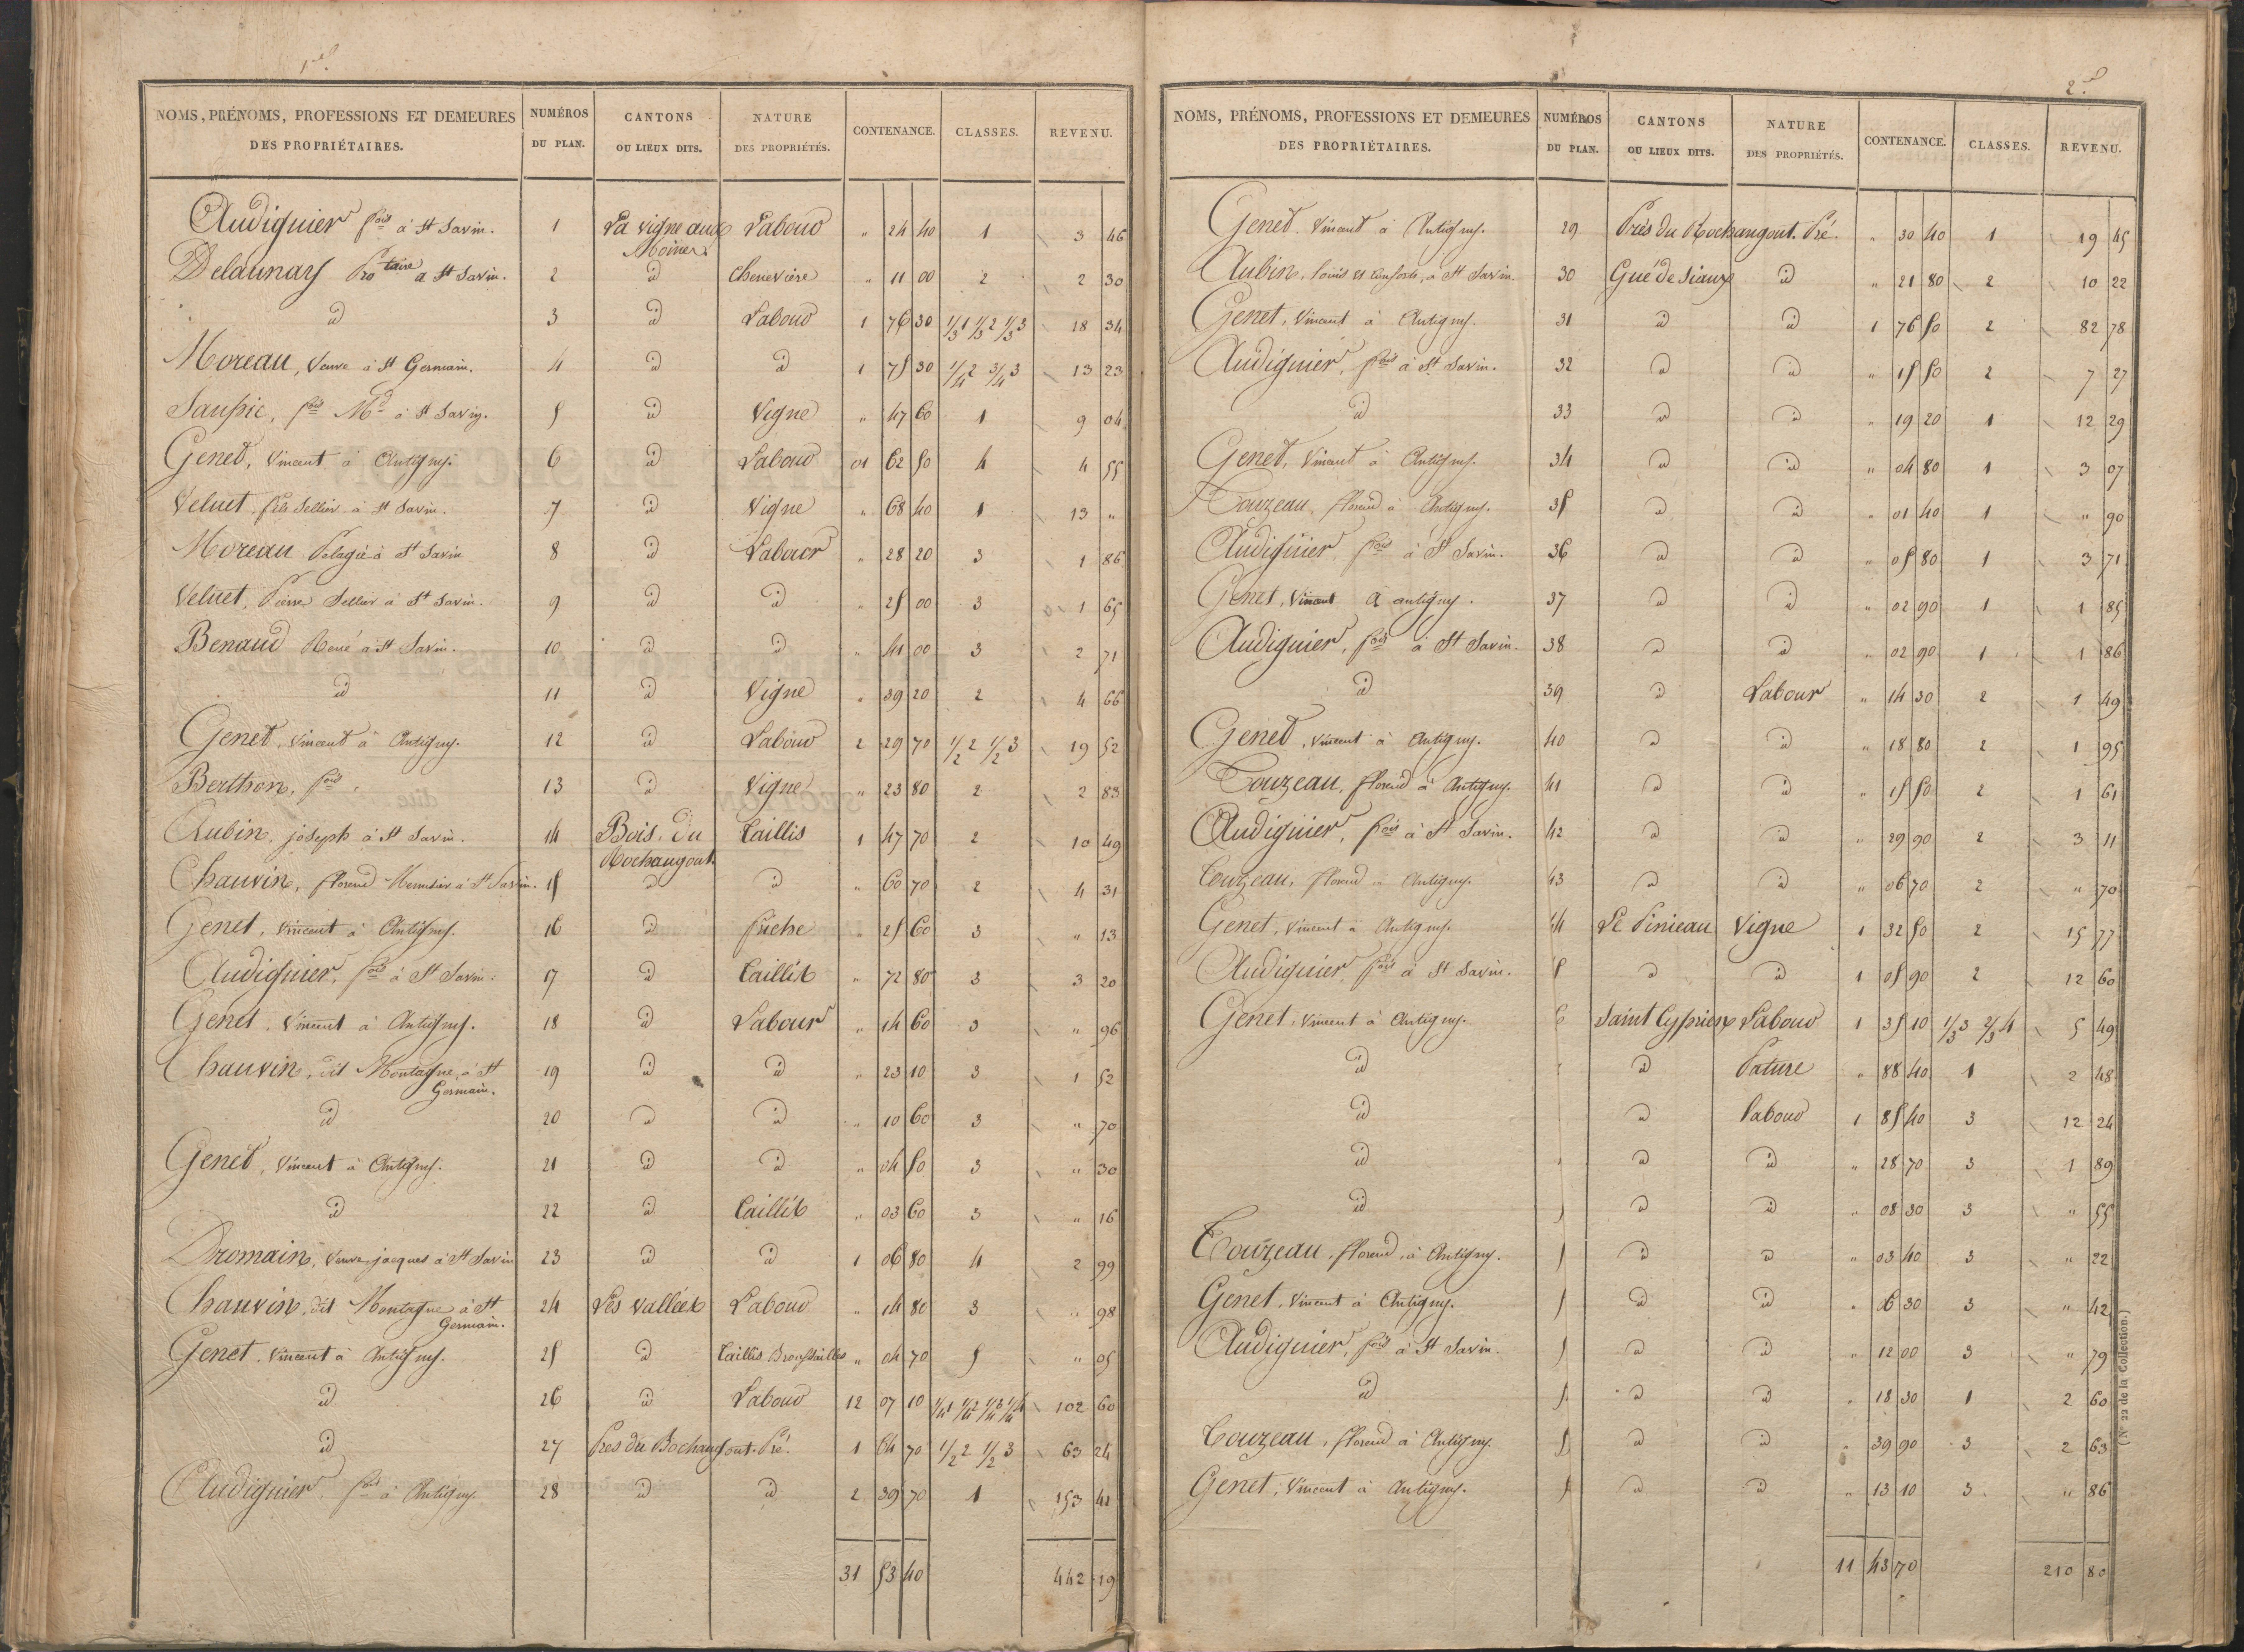 1re
NOMS, PRÉNOMS, PROFESSIONS ET DEMEURES DES PROPRIÉTAIRES. NUMÉROS DU PLAN. CANTONS OU LIEUX DITS. NATURE DES PROPRIÉTÉS. CONTENANCE. CLASSES. REVENU.
Audiguier fois à St Savin. 1 La vigne aux Moines Labour " 24 40 1 3 46
Delaunay à St Savin. 2 id Chenevière " 11 00 2 2 30
id 3 id Labour 1 76 30 1/3 1 1/3 2 1/3 3 18 34
Moreau, Veuve à St Germain. 4 id id 1 75 30 1/4 2 3/4 3 13 23
Saupic, fois Md à St Savin. 5 id Vigne " 47 60 1 9 04
Genet, Vincent à Antigny. 6 id Labour 01 62 50 4 4 55
Veluet, Sellier à St Savin. 7 id Vigne " 68 40 1 13 "
Moreau Pelagie à St Savin 8 id Labour " 28 20 3 1 86
Veluet, Pierre Sellier à St Savin. 9 id id " 25 00 3 1 65
Benaud René à St Savin. 10 id id " 41 00 3 2 71
id 11 id Vigne " 39 20 2 4 66
Genet, Vincent à Antigny. 12 id Labour 2 29 70 1/2 2 1/2 3 19 52
Berthon, fois. 13 id Vigne " 23 80 2 2 83
Aubin, joseph à St Savin. 14 Bois du Rochangout Taillis 1 47 70 2 10 49
Chauvin, florend Menuisier à St Savin. 15 id id " 60 70 2 4 31
Genet, Vincent à Antigny. 16 id friche " 25 60 3 " 13
Audiguier, fois à St Savin. 17 id Taillis " 72 80 3 3 20
Genet, Vincent à Antigny. 18 id Labour " 14 60 3 " 96
Chauvin, dit Montagne, à St Germain. 19 id id " 23 10 3 1 52
id 20 id id " 10 60 3 " 70
Genet, Vincent à Antigny. 21 id id " 04 50 3 " 30
id 22 id Taillis " 03 60 3 " 16
Dromain, Veuve jacques à St Savin 23 id id 1 06 80 4 2 99
Chauvin, dit Montagne à St Germain. 24 Les Vallées Labour " 14 80 3 " 98
Genet, Vincent à Antigny. 25 id Taillis Broussailles " 04 70 5 " 05
id 26 id Labour 12 07 10 1/4 1 1/4 2 1/4 3 1/4 4 102 60
id 27 Prés du Rochangout. Pré. 1 64 70 1/2 2 1/2 3 63 24
Audiguier fois à Antigny 28 id id 2 39 70 1 153 41
31 53 40 442 19
2e
NOMS, PRÉNOMS, PROFESSIONS ET DEMEURES DES PROPRIÉTAIRES. NUMÉROS DU PLAN. CANTONS OU LIEUX DITS. NATURE DES PROPRIÉTÉS. CONTENANCE. CLASSES. REVENU.
Genet Vincent à Antigny. 29 Près du Rochangout. Pré. " 30 40 1 19 45
Aubin, louis et consorts, à St Savin. 30 Gué de Siaux id " 21 80 2 10 22
Genet, Vincent à Antigny. 31 id id 1 76 50 2 82 78
Audiguier, fois à St Savin. 32 id id " 15 50 2 7 27
id 33 id id " 19 20 1 12 29
Genet, Vincent à Antigny. 34 id id " 04 80 1 3 07
Couzeau, florend à Antigny. 35 id id " 01 40 1 " 90
Audiguier, fois à St Savin. 36 id id " 05 80 1 3 71
Genet, Vincent à antigny. 37 id id " 02 90 1 1 85
Audiguier, fois à St Savin. 38 id id " 02 90 1 1 86
id 39 id Labour " 14 30 2 1 49
Genet, Vincent à Antigny. 40 id id " 18 80 2 1 95
Couzeau, florend à Antigny. 41 id id " 15 50 2 1 61
Audiguier, fois à St Savin. 42 id id " 29 90 2 3 11
Couzeau, florend à Antigny. 43 id id " 06 70 2 " 70
Genet, Vincent à Antigny. 44 Le Pinieau Vigne 1 32 50 2 15 77
Audiguier fois à St Savin. id id 1 05 90 2 12 60
Genet, Vincent à Antigny. Saint Cyprien Labour 1 35 10 1/3 3 2/3 4 5 49
id id Pature " 88 40 1 2 48
id id Labour 1 85 40 3 12 24
id id id " 28 70 3 1 89
id id id " 08 30 3 " 55
Couzeau, florend, à Antigny. id id " 03 40 3 " 22
Genet, Vincent à Antigny. id id " 06 30 3 " 42
Audiguier, fois à St Savin. id id " 12 00 3 " 79
id id id " 18 30 1 2 60
Couzeau, florend à Antigny. id id " 39 90 3 2 63
Genet, Vincent à Antigny. id id " 13 10 3 " 86
11 43 70 210 80
(N° 22 de la Collection.)